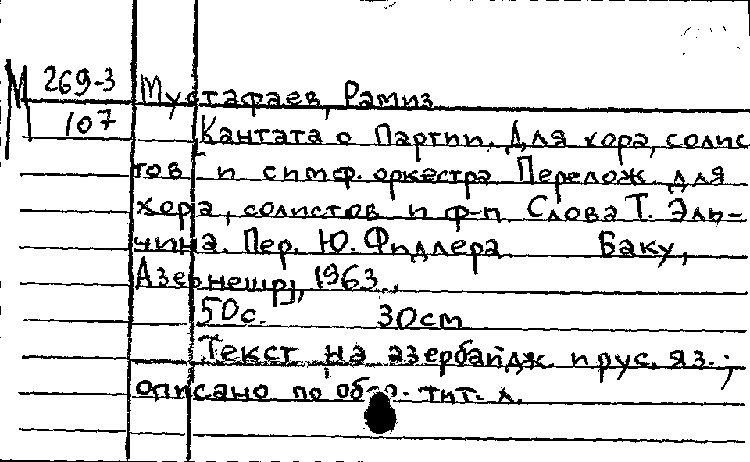 М 269-3
107
Мустафаев, Рамиз
Кантата о Партии. Для хора, солис
тов и симф. оркестра Перелож для
хора, солистов и ф-п. Слова Т. Эль-
чина. Пер. Ю. Фидлера. Баку,
Азернешр, 1963.,
50с. 30см
Текст на азербайдж. и рус. яз.;
описано по тит. л.